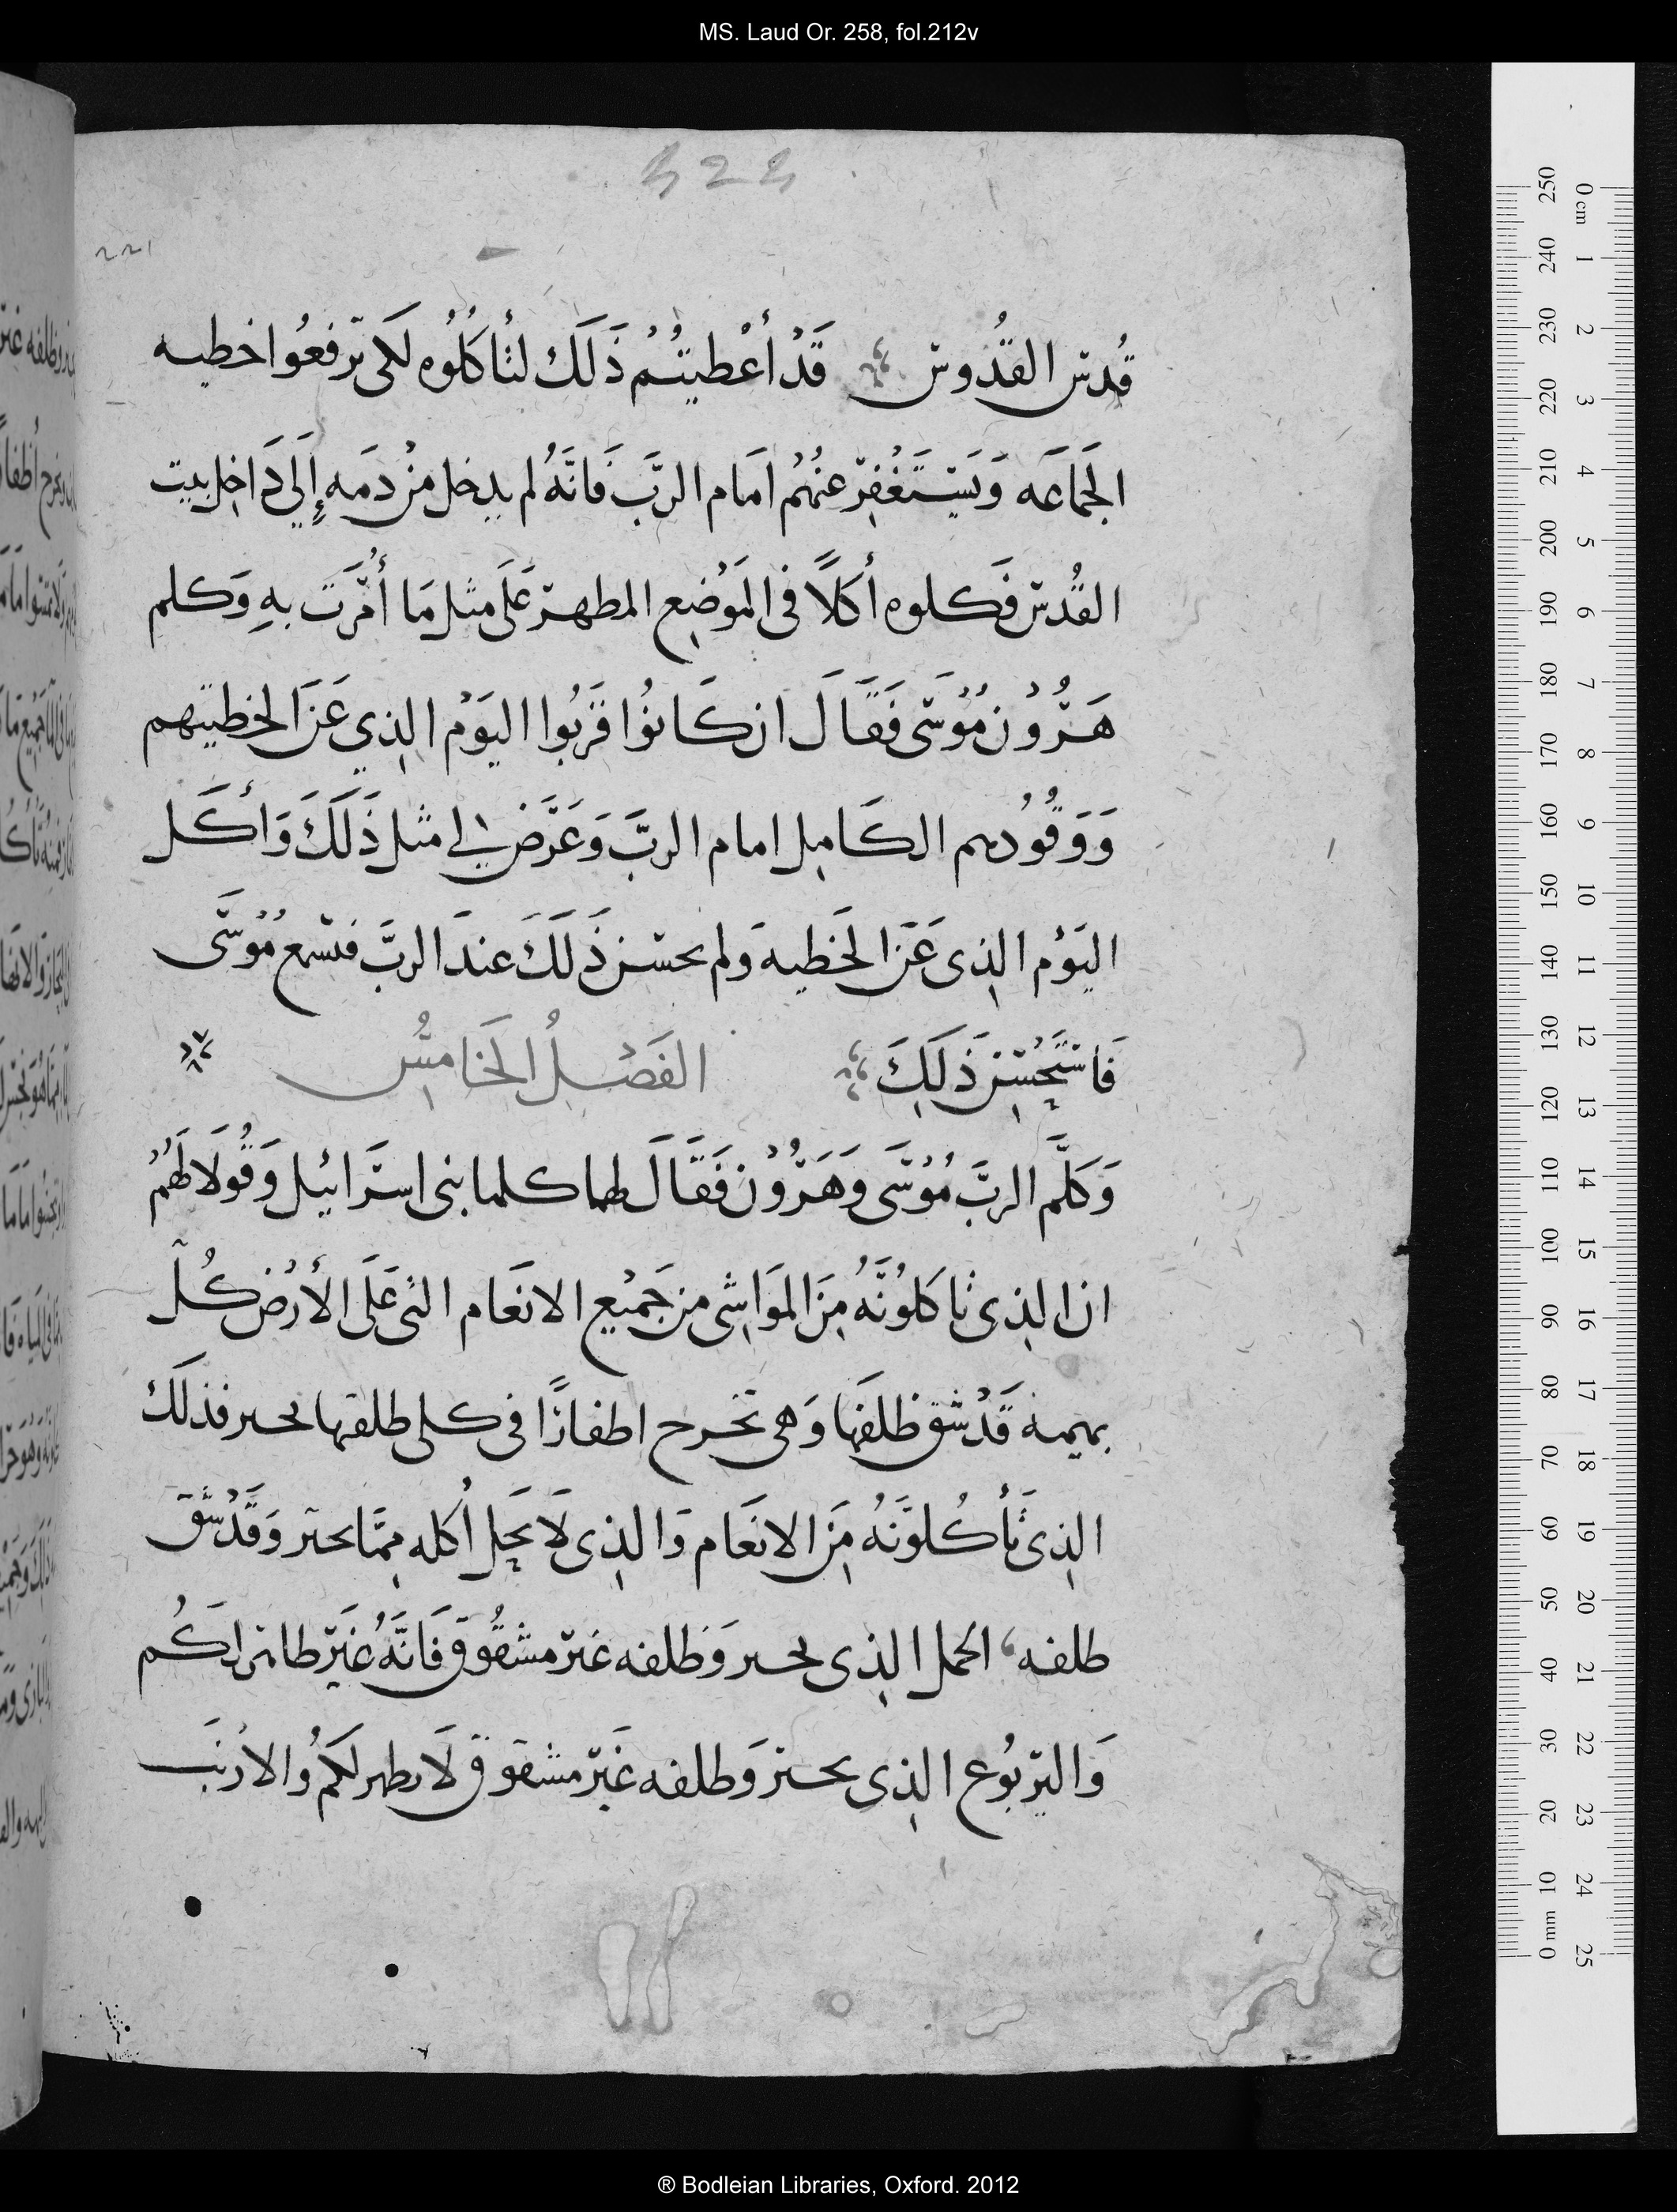 MS. Laud Or. 258, fol.212v
قُدس القدُوس قَدْ أعْطيتُمْ ذَلَك لتأكُلُوه لكى ترفعُوا خطيه
الجَماعَه وَيَستَغْفِر عنهُم امَام الربَّ فَانَّهُ لم يدخل منْ دمَه إِلي دَاخِل بيت
القُدس فَكلوه أكلاً فى المَوْضِع المطهر عَلَى مثل مَا أُمرَت بهِ وَكلم
هَرُون مُوسَى فَقَالَ ان كَانوُا قَربُوا اليَوْم الذِي عَن الخطيتهم
وَوَقُودهم الكَامِل امام الربَّ وَعَرَّض لِي مثل ذَلَكَ وَأكَل
اليَوْم الذِى عَن الخَطيه وَلم يحسن ذَلَكَ عندَ الربَّ فسمع مُوسَى
فَاستَحْسَن ذَلَكَ الفَصْل الخَامسُ
وَكَلَّم الربَّ مُوسَى وَهَرُوْن فَقَالَ لهما كلما بنى اسرَائيل وَقُولَا لهَمُ
ان الذِى تاكلوُنَهُ مِنَ المَوَاشِى من جَميْع الانعَام التى عَلَى الأرْض كُل
بهيمة قَدْ شق ظلفها وَهى تخرج اظفارًا فى كلى ظلفيها تحتر فذلَك
الذِى تأكُلوَنَهُ مِنَ الانعَام وَالذِى لَا يَحِل أكله مِمَّا يحتر وَقَدْ شَق
ظلفه الجمل الذِى يحتر وَظلفه غير مشقُوق فَانَّهُ غَيْر طاهر لكُم
وَاليَربُوع الذِى يحتر وَظلفه غَيْر مشقوق لَا يطهر لكمُ والارْنَب
® Bodleian Libraries, Oxford. 2012